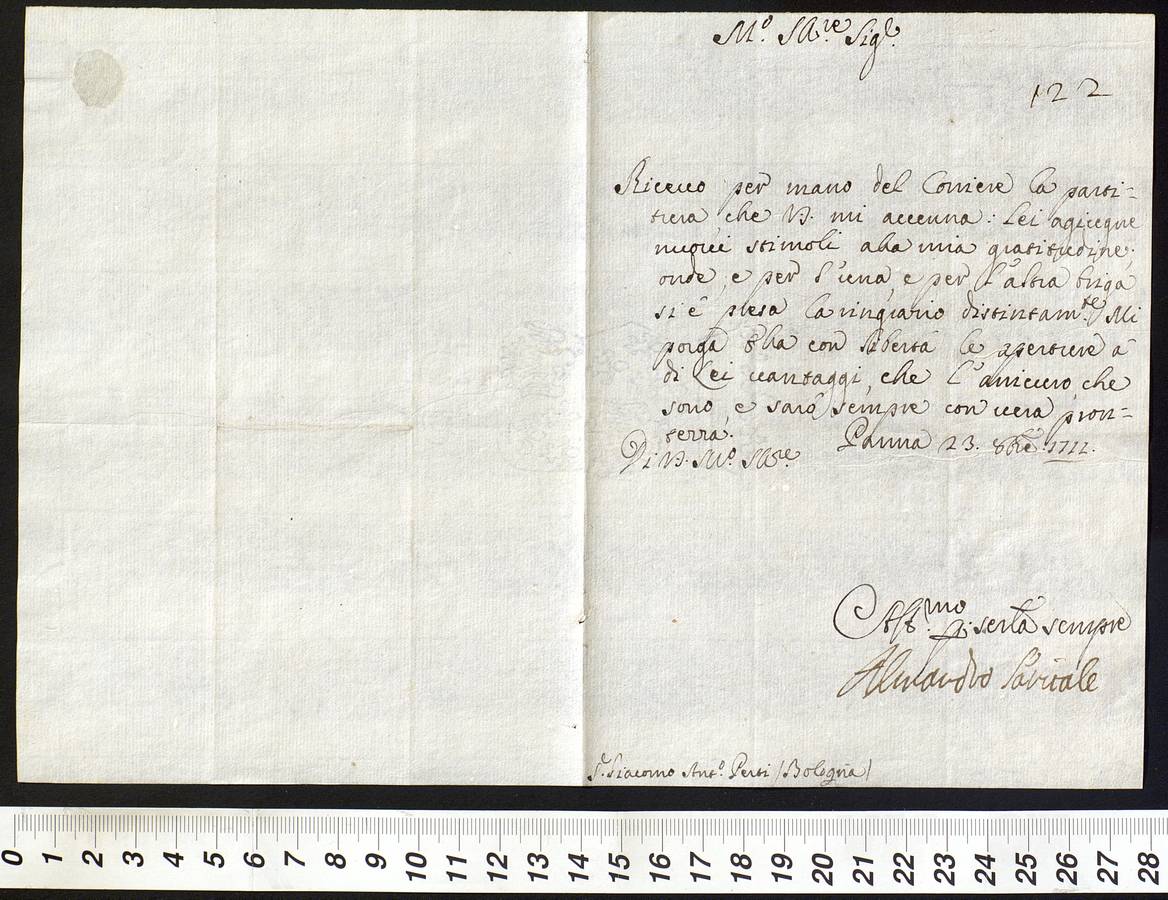 M.º Ill.re Sig.r
122
Riceuo per mano del Corriere la parti-
tura che V.S. mi accenna: Lei agiugne
nuoui stimoli alla mia gratitudine:
onde, e per l'una, e per l'altra briga
si è presa La ringrario distintam.te Mi
porga Ella con libertà le aperture à
di Lei uantaggi, che L'assicuro che
sono, e sarò sempre con uera pron-
terra. Parma 23. 8bre 1711.
Di V.S. M.º Ill.re
Aff.mo P. serla sempre
Sanuitale
S.r Giacomo Ant.º Perti (Bologna)
0 1 2 3 4 5 6 7 8 9 10 11 12 13 14 15 16 17 18 19 20 21 22 23 24 25 26 27 28